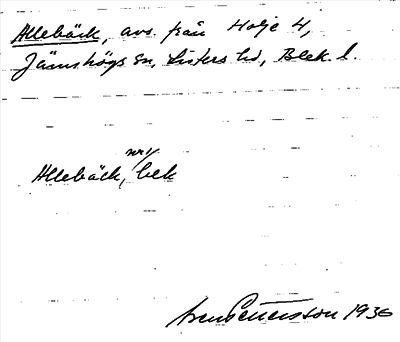 Allebäck, avs. från Holje 4,
Jämshögs sn, Listers hd, Blek. l.
nr 1/
Allebäck, bek
Pettersson 1936